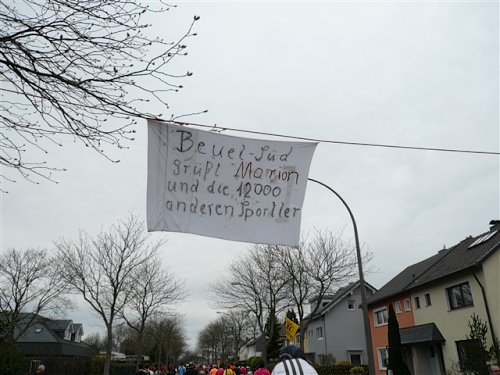 Beuel-Süd
grüßt Marion
und die 12000
anderen Sportler